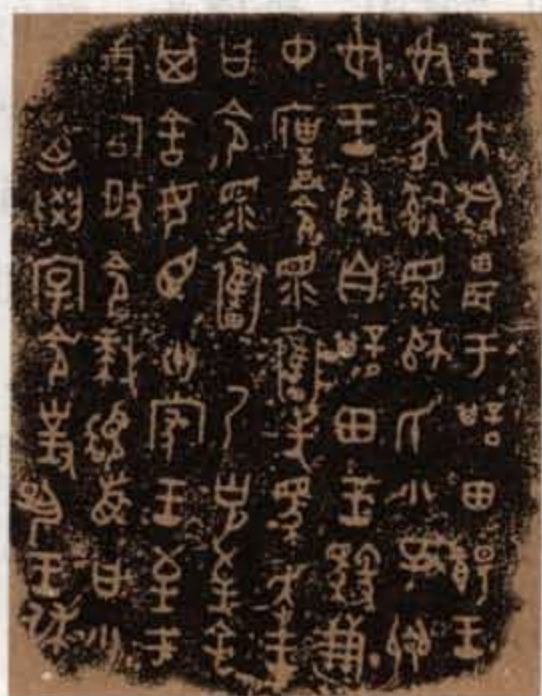 王大耤農于諆田餳王
射有𤔲眔師氏小子會
射王歸自諆田王馭溓
中僕令眔奮先馬走王
曰令眔奮乃克至余
其舍女臣卅家王至于
溓宮令拜𩒨首曰小
子迺學令對揚王休